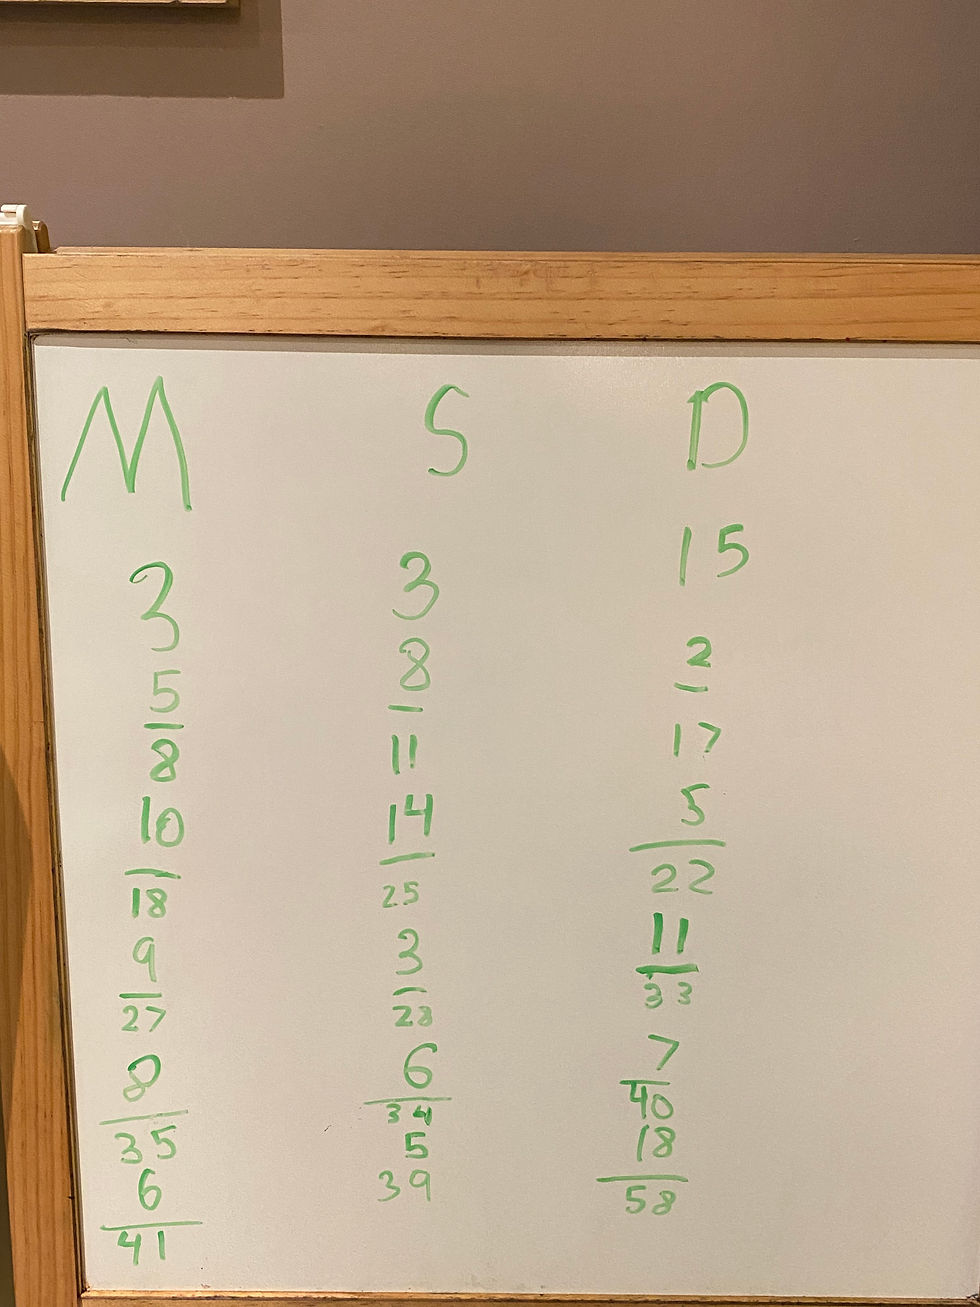 M S D
3 3 15
5 8 2
8 11 17
10 14 5
18 25 22
9 3 11
27 28 33
8 6 7
35 34 40
6 5 18
41 39 58